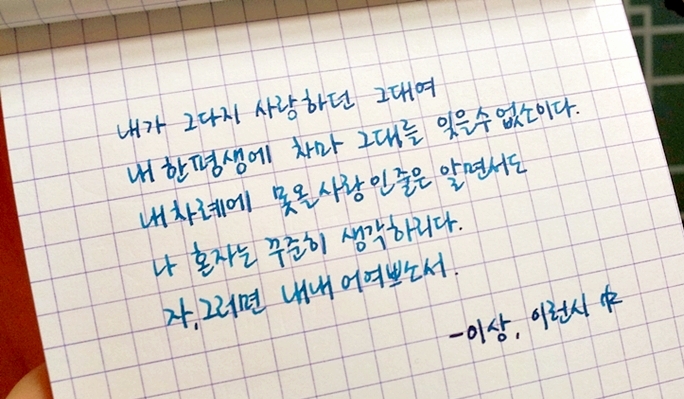 내가 그다지 사랑하던 그대여
내 한평생에 차마 그대를 잊을수 없소이다.
내 차례에 못올 사랑인 줄은 알면서도
나 혼자는 꾸준히 생각하리다.
자, 그러면 내내 어여쁘소서.
-이상, 이런시 中